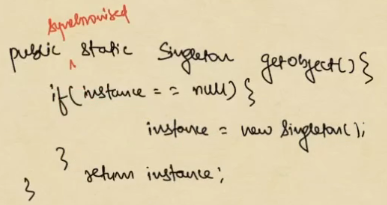 synchronised
public ^ static Singleton getobject() {
if(instance == null) {
instance = new Singleton();
}
return instance;
}